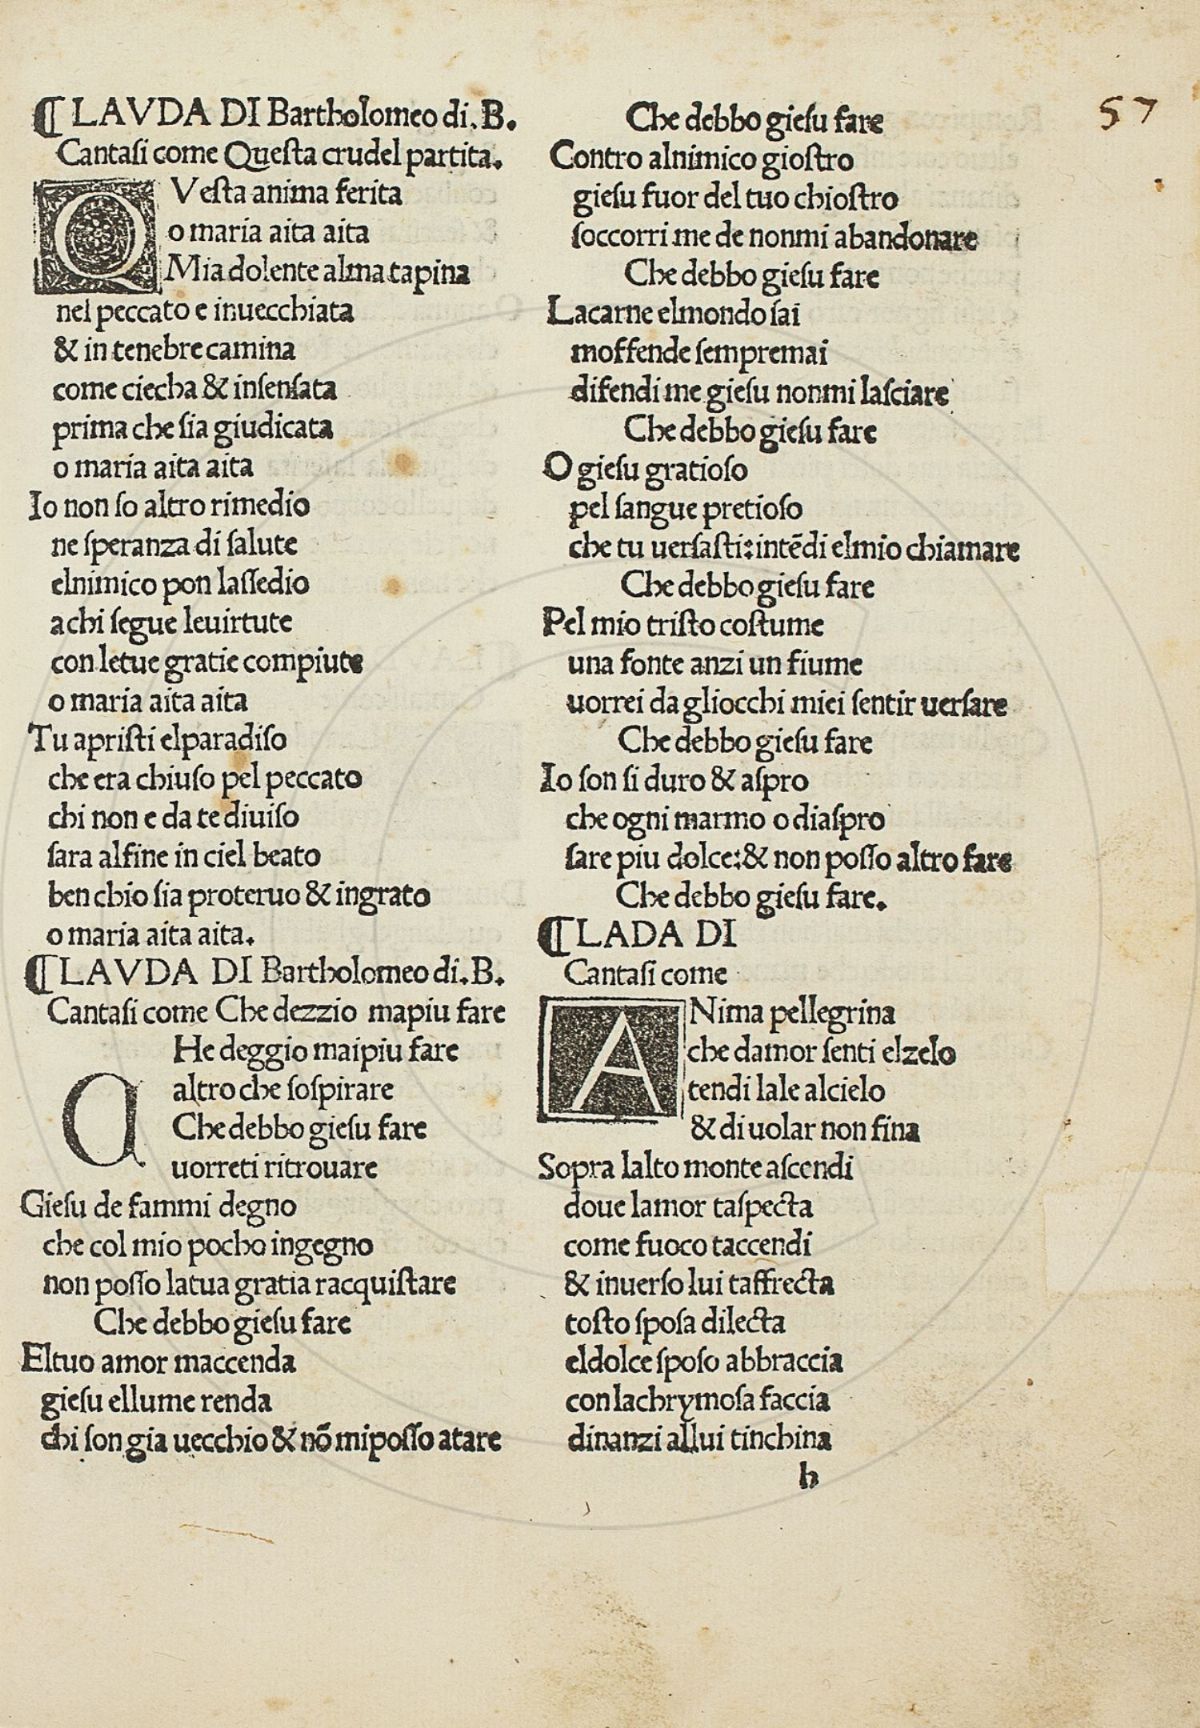 57
¶ LAVDA DI Bartholomeo di. B.
Cantasi come Questa crudel partita.
QVesta anima ferita
o maria aita aita
Mia dolente alma tapina
nel peccato e inuecchiata
& in tenebre camina
come ciecha & insensata
prima che sia giudicata
o maria aita aita
Io non so altro rimedio
ne speranza di salute
elnimico pon lassedio
achi segue leuirtute
con letue gratie compiute
o maria aita aita
Tu apristi elparadiso
che era chiuso pel peccato
chi non e da te diuiso
sara alfine in ciel beato
ben chio sia proteruo & ingrato
o maria aita aita.
¶ LAVDA DI Bartholomeo di. B.
Cantasi come Che dezzio mapiu fare
CHe deggio maipiu fare
altro che sospirare
Che debbo giesu fare
uorreti ritrouare
Giesu de fammi degno
che col mio pocho ingegno
non posso latua gratia racquistare
Che debbo giesu fare
Eltuo amor maccenda
giesu ellume renda
chi son gia uecchio & nõ miposso atare
Che debbo giesu fare
Contro alnimico giostro
giesu fuor del tuo chiostro
soccorri me de nonmi abandonare
Che debbo giesu fare
Lacarne elmondo sai
moffende sempremai
difendi me giesu nonmi lasciare
Che debbo giesu fare
O giesu gratioso
pel sangue pretioso
che tu uersasti: intẽdi elmio chiamare
Che debbo giesu fare
Pel mio tristo costume
una fonte anzi un fiume
uorrei da gliocchi miei sentir uersare
Che debbo giesu fare
Io son si duro & aspro
che ogni marmo o diaspro
sare piu dolce: & non posso altro fare
Che debbo giesu fare.
¶ LADA DI
Cantasi come
ANima pellegrina
che damor senti elzelo
tendi lale alcielo
& di uolar non fina
Sopra lalto monte ascendi
doue lamor taspecta
come fuoco taccendi
& inuerso lui taffrecta
tosto sposa dilecta
eldolce sposo abbraccia
con lachrymosa faccia
dinanzi allui tinchina
h